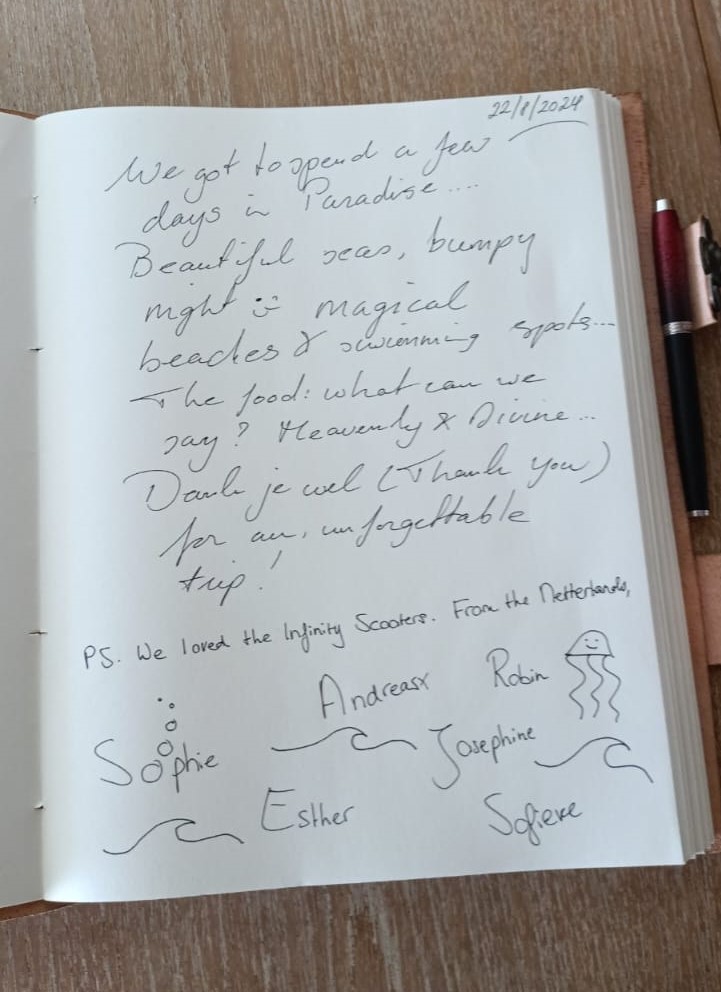 22/8/2024
We got to spend a few
days in Paradise....
Beautiful seas, bumpy
night :-) magical
beaches & swimming spots...
The food: what can we
say? Heavenly & Divine...
Dank je wel (Thank you)
for an, unforgettable
trip!
PS. We loved the Infinity Scooters. From the Netherlands,
Andreas x Robin
Sophie Josephine
Esther